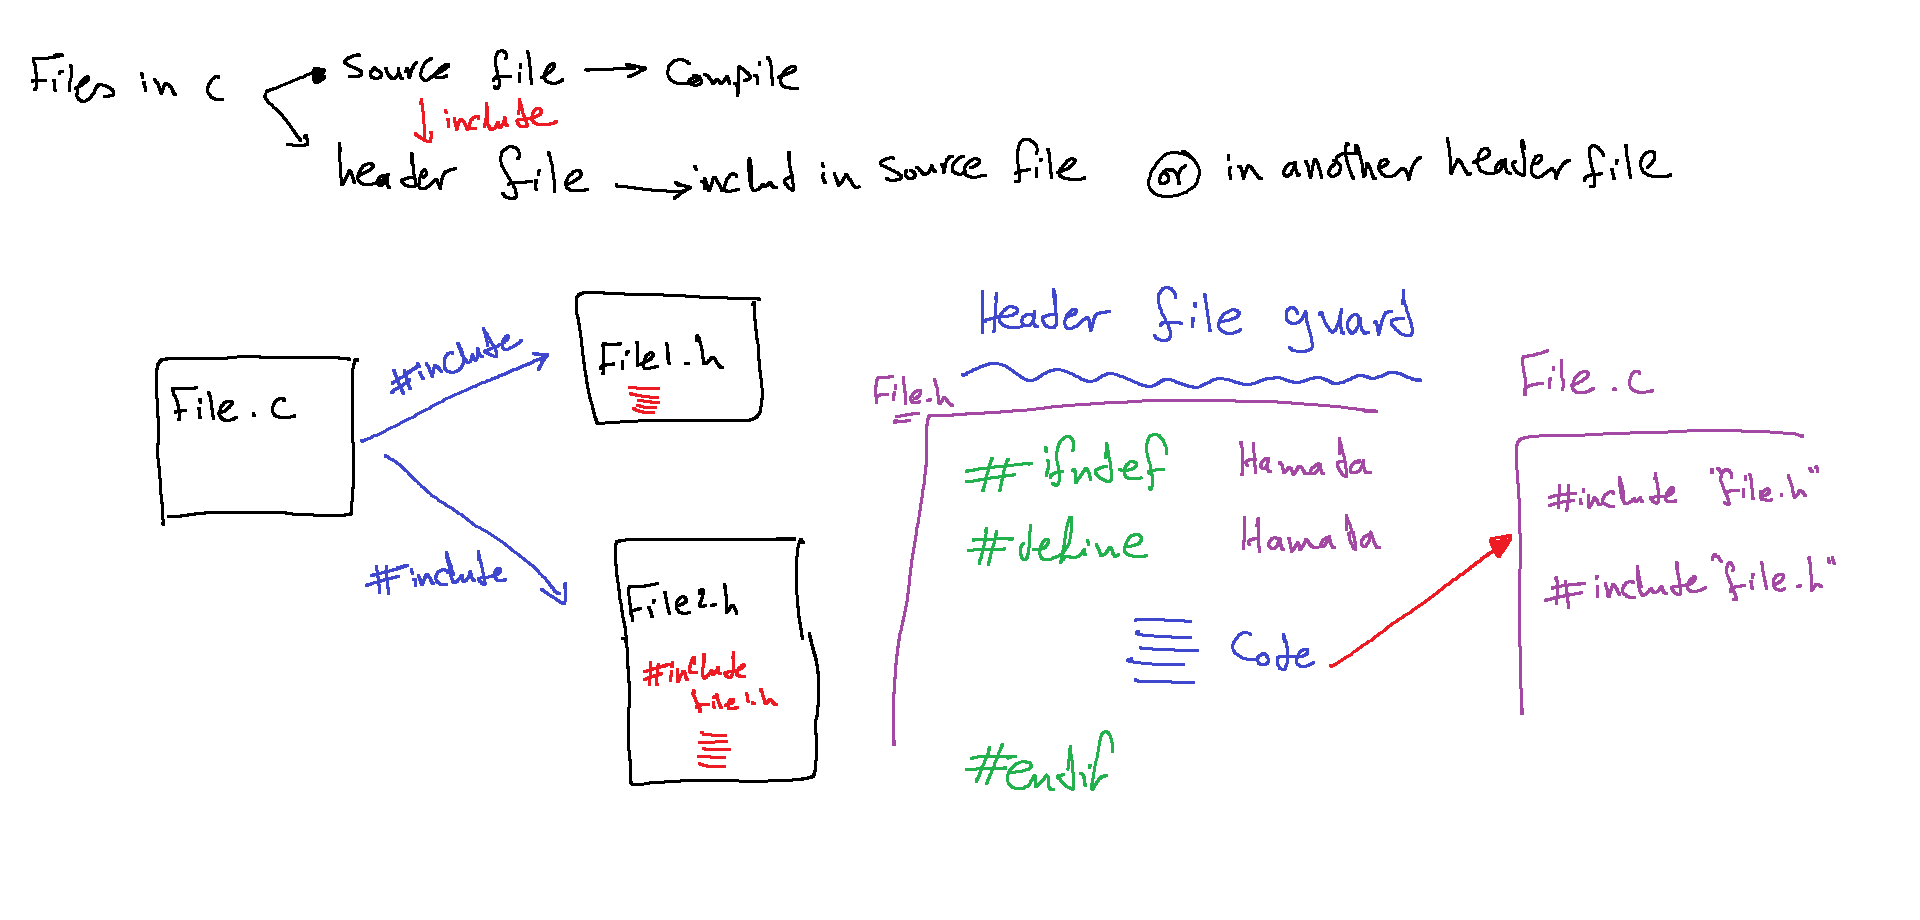 Files in c
Source file → Compile
↓ include
header file → includ in source file or in another header file
File.c
#include
#include
File1.h
File2.h
#include
file1.h
Header file guard
File.h
#ifndef Hamada
#define Hamada
Code
#endif
File.c
#include "file.h"
#include "file.h"